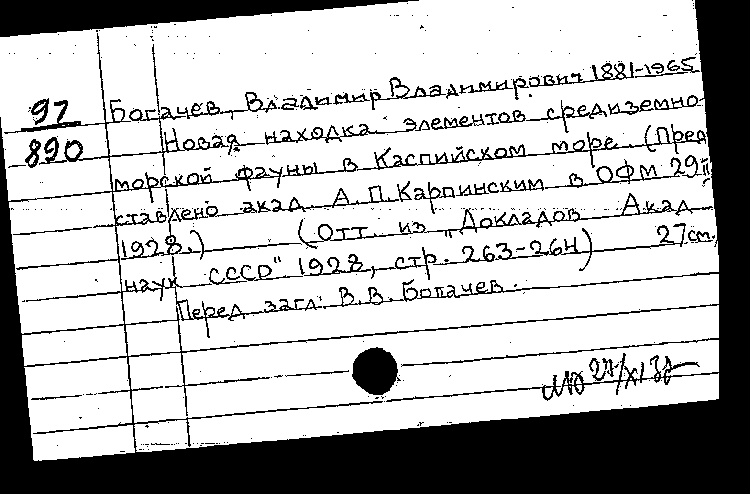 97
890
Богачев, Владимир Владимирович 1881-1965
Новая находка элементов средиземно-
морской фауны в Каспийском море (Пред
ставлено акад. А.П. Карпинским в ОФМ 29 II
1928.) (Отт. из „Докладов Акад
наук СССР" 1928, стр. 263-264) 27 см.
Перед загл: В.В. Богачев.
27/XI